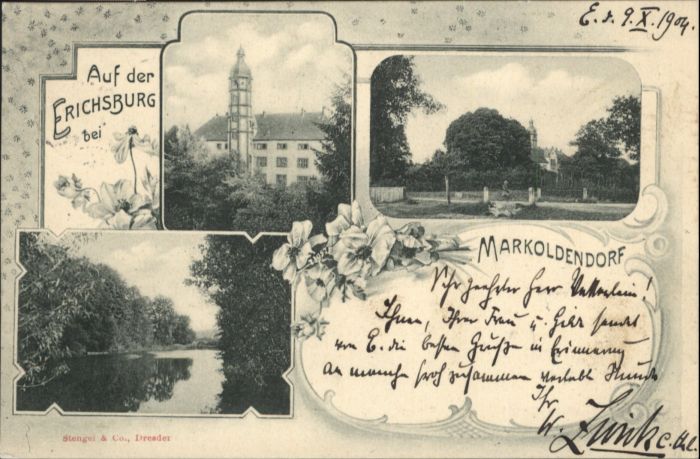 E. d. 9. X. 1904.
Auf der
ERICHSBURG
bei
MARKOLDENDORF
Sehr geehrter Herr
Ihnen, Ihrer Frau u. sendet
von E. die besten Grüße in Erinnerung
an manche froh zusammen verlebte Stunde
Ihr
W.
Stengel & Co., Dresden